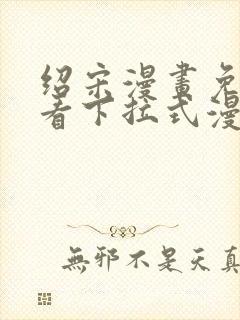 绍宋漫畫免
看下拉式漫
無邪不是天真